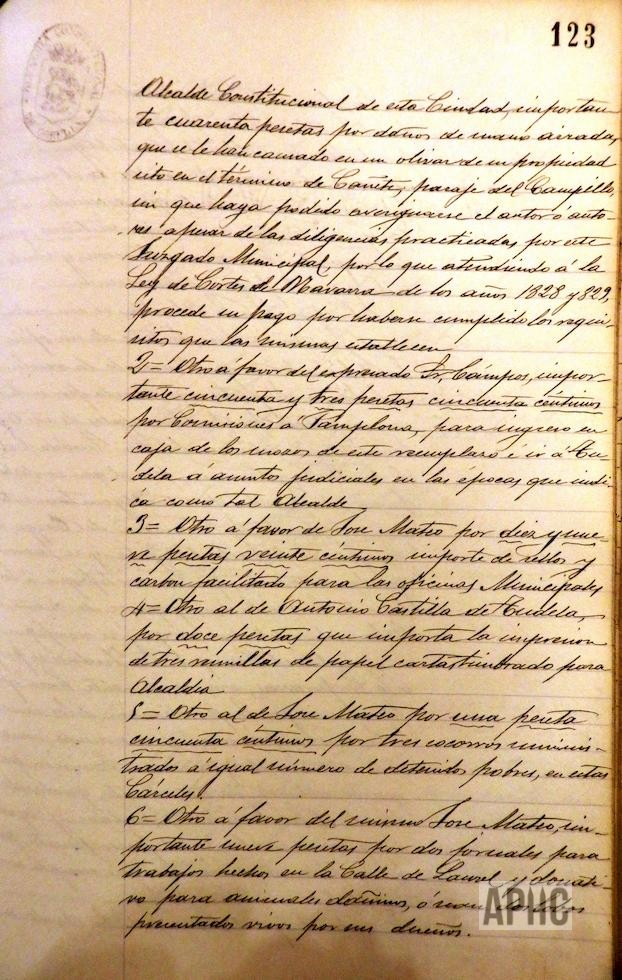 123
Alcalde Constitucional de esta Ciudad, importan-
te cuarenta pesetas por daños de mano airada,
que se le han causado en un olivar de su propiedad
sito en el término de Cañete, paraje del Campillo,
sin que haya podido averiguarse el autor ó auto-
res apesar de las diligencias practicadas por este
Juzgado Municipal, por lo que atendiendo á la
Ley de Cortes de Navarra de los años 1828 y 829,
procede su pago por haberse cumplido los requi-
sitos que las mismas establecen
2= Otro á favor del expresado Sr. Campos, impor-
tante cincuenta y tres pesetas cincuenta centimos
por Comisiones á Pamplona, para ingreso en
caja de los mozos de este reemplazo é ir á Tu-
dela á asuntos judiciales en las épocas que indi-
ca como tal Alcalde
3= Otro á favor de Jose Mateo por diez y nue-
ve pesetas veinte céntimos importe de sellos y
carbon facilitado para las oficinas Municipales
4= Otro al de Antonio Castilla de Tudela,
por doce pesetas que importa la impresion
de tres resmillas de papel cartas timbrado para
Alcaldia
5= Otro al de Jose Mateo por una peseta
cincuenta céntimos por tres socorros suminis-
trados á igual número de detenidos pobres, en estas
Cárceles.
6= Otro á favor del mismo Jose Mateo, im-
portante nueve pesetas por dos jornales para
trabajos hechos en la Calle de Laurel y donati-
vo para animales dañinos, ó sean dos lobos
presentados vivos por sus dueños.
APHC